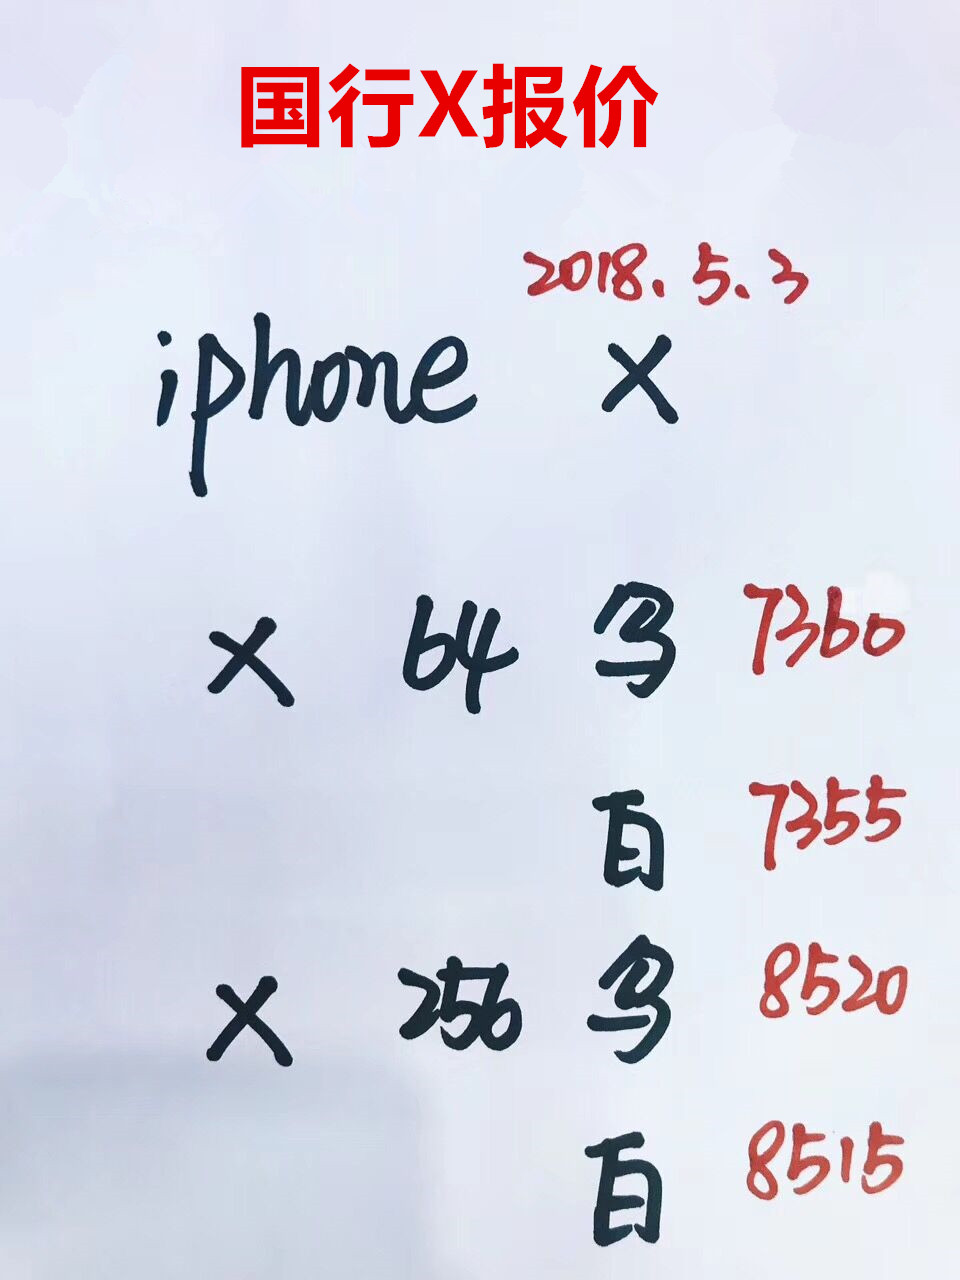 国行X报价
2018.5.3
iphone X
X 64 乌 7360
百 7355
X 256 乌 8520
百 8515